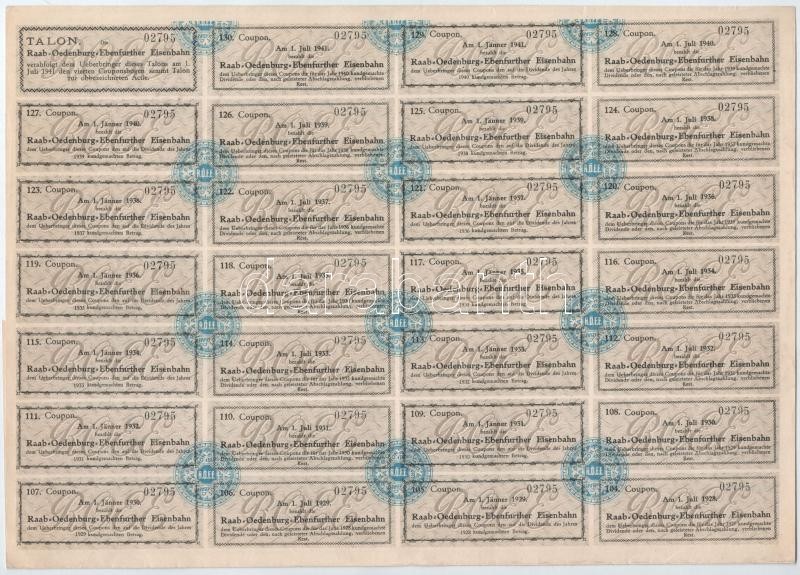 TALON. Die 02795
Raab-Oedenburg-Ebenfurther Eisenbahn
verabfolgt dem Ueberbringer dieses Talons am 1.
Juli 1941 den vierten Couponsbogen sammt Talon
zur obbezeichneten Actie.
130. Coupon. 02795
Am 1. Juli 1941.
bezahlt die
Raab-Oedenburg-Ebenfurther Eisenbahn
dem Ueberbringer dieses Coupons die für das Jahr 1940 kundgemachte
Dividende oder den, nach geleisteter Abschlagszahlung, verbliebenen
Rest.
129. Coupon. 02795
Am 1. Jänner 1941.
bezahlt die
Raab-Oedenburg-Ebenfurther Eisenbahn
dem Ueberbringer dieses Coupons den auf die Dividende des Jahres
1940 kundgemachten Betrag.
128. Coupon. 02795
Am 1. Juli 1940.
bezahlt die
Raab-Oedenburg-Ebenfurther Eisenbahn
dem Ueberbringer dieses Coupons die für das Jahr 1939 kundgemachte
Dividende oder den, nach geleisteter Abschlagszahlung, verbliebenen
Rest.
127. Coupon. 02795
Am 1. Jänner 1940.
bezahlt die
Raab-Oedenburg-Ebenfurther Eisenbahn
dem Ueberbringer dieses Coupons den auf die Dividende des Jahres
1939 kundgemachten Betrag.
126. Coupon. 02795
Am 1. Juli 1939.
bezahlt die
Raab-Oedenburg-Ebenfurther Eisenbahn
dem Ueberbringer dieses Coupons die für das Jahr 1938 kundgemachte
Dividende oder den, nach geleisteter Abschlagszahlung, verbliebenen
Rest.
125. Coupon. 02795
Am 1. Jänner 1939.
bezahlt die
Raab-Oedenburg-Ebenfurther Eisenbahn
dem Ueberbringer dieses Coupons den auf die Dividende des Jahres
1938 kundgemachten Betrag.
124. Coupon. 02795
Am 1. Juli 1938.
bezahlt die
Raab-Oedenburg-Ebenfurther Eisenbahn
dem Ueberbringer dieses Coupons die für das Jahr 1937 kundgemachte
Dividende oder den, nach geleisteter Abschlagszahlung, verbliebenen
Rest.
R.O.E.E.
R.O.E.E.
R.O.E.E.
123. Coupon. 02795
Am 1. Jänner 1938.
bezahlt die
Raab-Oedenburg-Ebenfurther Eisenbahn
dem Ueberbringer dieses Coupons den auf die Dividende des Jahres
1937 kundgemachten Betrag.
122. Coupon. 02795
Am 1. Juli 1937.
bezahlt die
Raab-Oedenburg-Ebenfurther Eisenbahn
dem Ueberbringer dieses Coupons die für das Jahr 1936 kundgemachte
Dividende oder den, nach geleisteter Abschlagszahlung, verbliebenen
Rest.
121. Coupon. 02795
Am 1. Jänner 1937.
bezahlt die
Raab-Oedenburg-Ebenfurther Eisenbahn
dem Ueberbringer dieses Coupons den auf die Dividende des Jahres
1936 kundgemachten Betrag.
120. Coupon. 02795
Am 1. Juli 1936.
bezahlt die
Raab-Oedenburg-Ebenfurther Eisenbahn
dem Ueberbringer dieses Coupons die für das Jahr 1935 kundgemachte
Dividende oder den, nach geleisteter Abschlagszahlung, verbliebenen
Rest.
119. Coupon. 02795
Am 1. Jänner 1936.
bezahlt die
Raab-Oedenburg-Ebenfurther Eisenbahn
dem Ueberbringer dieses Coupons den auf die Dividende des Jahres
1935 kundgemachten Betrag.
118. Coupon. 02795
Am 1. Juli 1935.
bezahlt die
Raab-Oedenburg-Ebenfurther Eisenbahn
dem Ueberbringer dieses Coupons die für das Jahr 1934 kundgemachte
Dividende oder den, nach geleisteter Abschlagszahlung, verbliebenen
Rest.
117. Coupon. 02795
Am 1. Jänner 1935.
bezahlt die
Raab-Oedenburg-Ebenfurther Eisenbahn
dem Ueberbringer dieses Coupons den auf die Dividende des Jahres
1934 kundgemachten Betrag.
116. Coupon. 02795
Am 1. Juli 1934.
bezahlt die
Raab-Oedenburg-Ebenfurther Eisenbahn
dem Ueberbringer dieses Coupons die für das Jahr 1933 kundgemachte
Dividende oder den, nach geleisteter Abschlagszahlung, verbliebenen
Rest.
darabanth.com
R.O.E.E.
R.O.E.E.
R.O.E.E.
115. Coupon. 02795
Am 1. Jänner 1934.
bezahlt die
Raab-Oedenburg-Ebenfurther Eisenbahn
dem Ueberbringer dieses Coupons den auf die Dividende des Jahres
1933 kundgemachten Betrag.
114. Coupon. 02795
Am 1. Juli 1933.
bezahlt die
Raab-Oedenburg-Ebenfurther Eisenbahn
dem Ueberbringer dieses Coupons die für das Jahr 1932 kundgemachte
Dividende oder den, nach geleisteter Abschlagszahlung, verbliebenen
Rest.
113. Coupon. 02795
Am 1. Jänner 1933.
bezahlt die
Raab-Oedenburg-Ebenfurther Eisenbahn
dem Ueberbringer dieses Coupons den auf die Dividende des Jahres
1932 kundgemachten Betrag.
112. Coupon. 02795
Am 1. Juli 1932.
bezahlt die
Raab-Oedenburg-Ebenfurther Eisenbahn
dem Ueberbringer dieses Coupons die für das Jahr 1931 kundgemachte
Dividende oder den, nach geleisteter Abschlagszahlung, verbliebenen
Rest.
111. Coupon. 02795
Am 1. Jänner 1932.
bezahlt die
Raab-Oedenburg-Ebenfurther Eisenbahn
dem Ueberbringer dieses Coupons den auf die Dividende des Jahres
1931 kundgemachten Betrag.
110. Coupon. 02795
Am 1. Juli 1931.
bezahlt die
Raab-Oedenburg-Ebenfurther Eisenbahn
dem Ueberbringer dieses Coupons die für das Jahr 1930 kundgemachte
Dividende oder den, nach geleisteter Abschlagszahlung, verbliebenen
Rest.
109. Coupon. 02795
Am 1. Jänner 1931.
bezahlt die
Raab-Oedenburg-Ebenfurther Eisenbahn
dem Ueberbringer dieses Coupons den auf die Dividende des Jahres
1930 kundgemachten Betrag.
108. Coupon. 02795
Am 1. Juli 1930.
bezahlt die
Raab-Oedenburg-Ebenfurther Eisenbahn
dem Ueberbringer dieses Coupons die für das Jahr 1929 kundgemachte
Dividende oder den, nach geleisteter Abschlagszahlung, verbliebenen
Rest.
R.O.E.E.
R.O.E.E.
R.O.E.E.
107. Coupon. 02795
Am 1. Jänner 1930.
bezahlt die
Raab-Oedenburg-Ebenfurther Eisenbahn
dem Ueberbringer dieses Coupons den auf die Dividende des Jahres
1929 kundgemachten Betrag.
106. Coupon. 02795
Am 1. Juli 1929.
bezahlt die
Raab-Oedenburg-Ebenfurther Eisenbahn
dem Ueberbringer dieses Coupons die für das Jahr 1928 kundgemachte
Dividende oder den, nach geleisteter Abschlagszahlung, verbliebenen
Rest.
105. Coupon. 02795
Am 1. Jänner 1929.
bezahlt die
Raab-Oedenburg-Ebenfurther Eisenbahn
dem Ueberbringer dieses Coupons den auf die Dividende des Jahres
1928 kundgemachten Betrag.
104. Coupon. 02795
Am 1. Juli 1928.
bezahlt die
Raab-Oedenburg-Ebenfurther Eisenbahn
dem Ueberbringer dieses Coupons die für das Jahr 1927 kundgemachte
Dividende oder den, nach geleisteter Abschlagszahlung, verbliebenen
Rest.